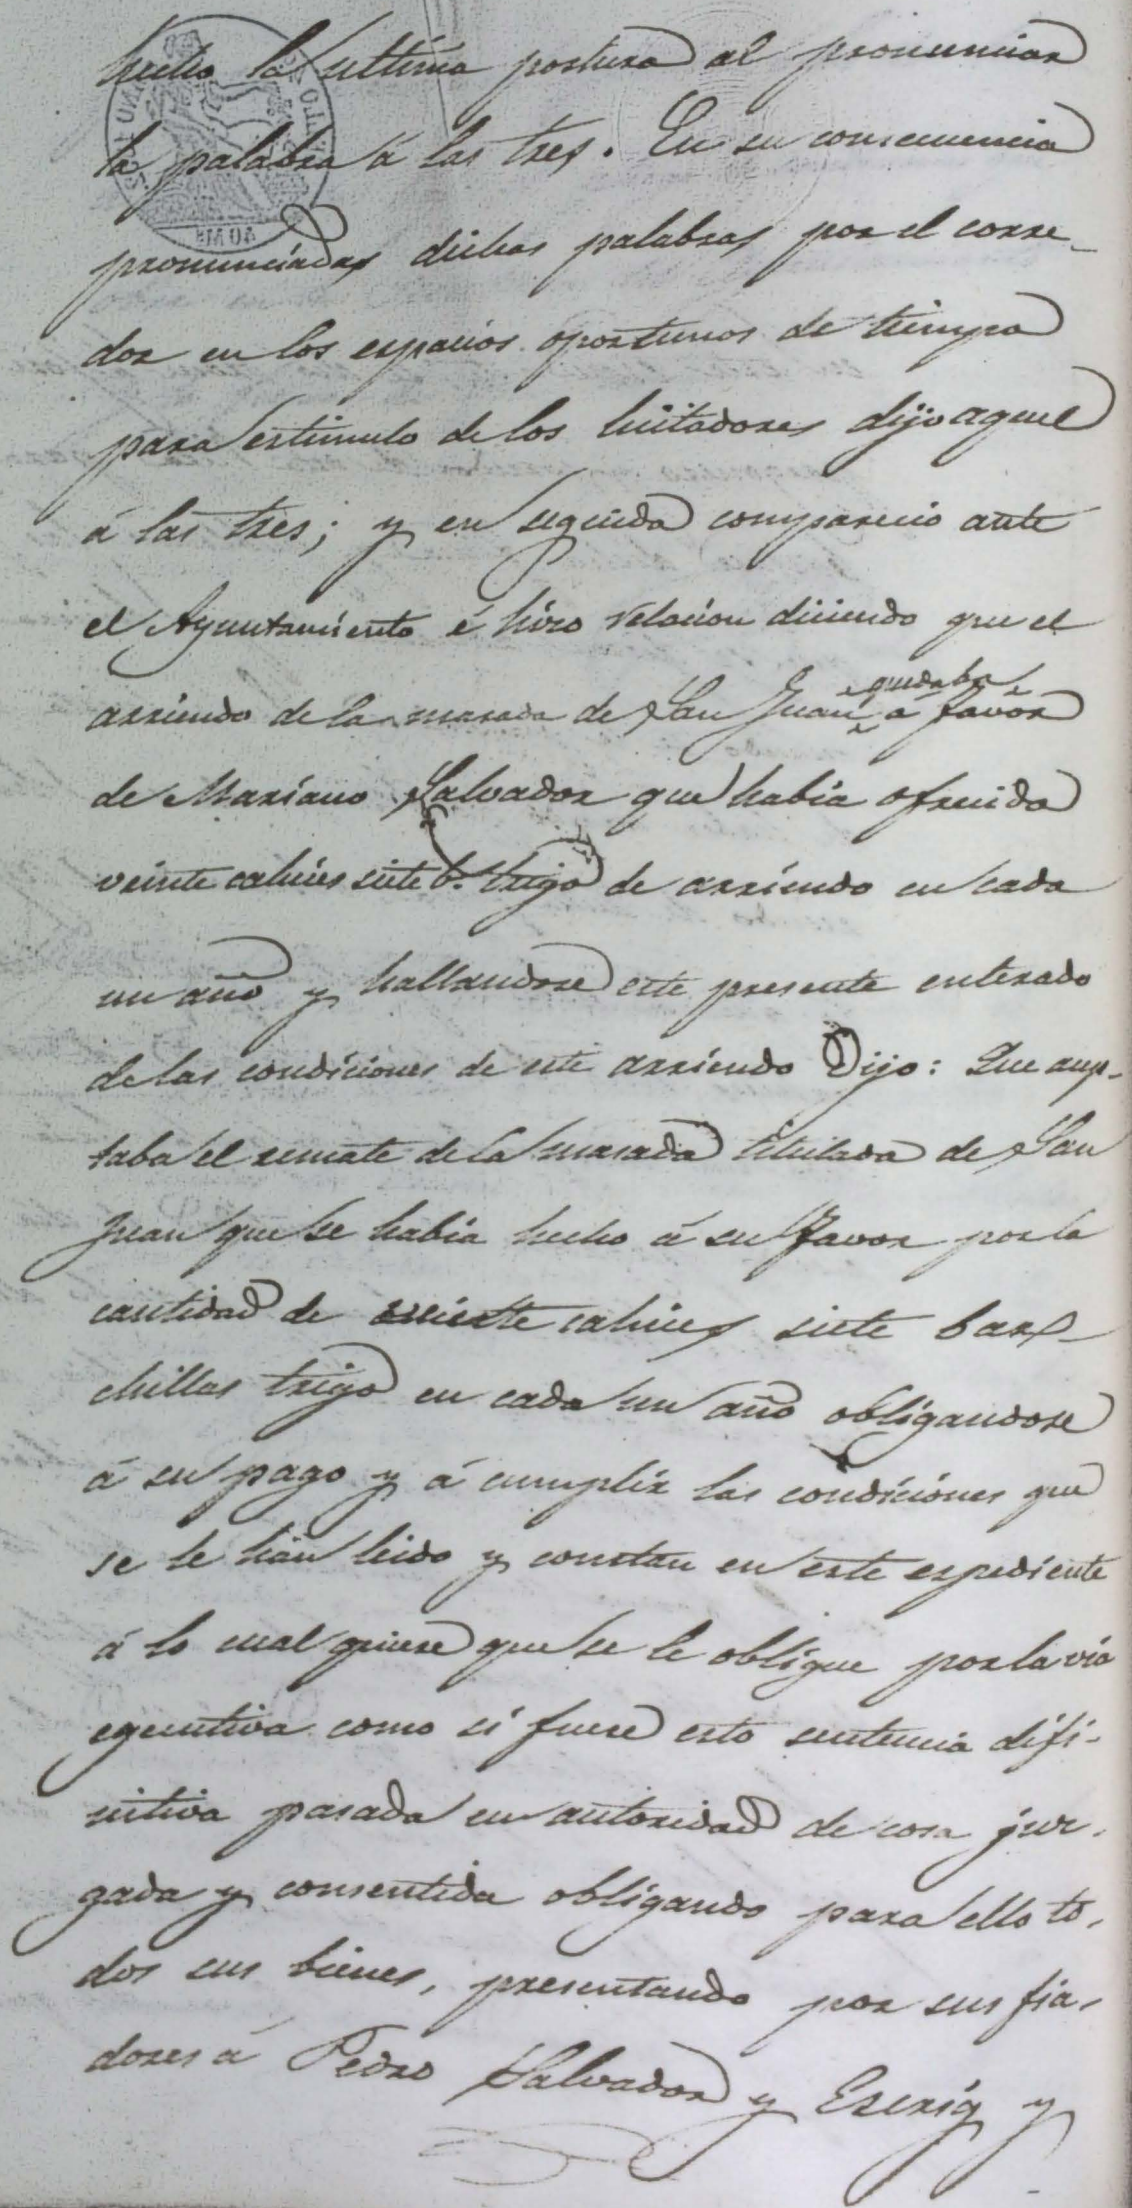 hecho la ultima postura al pronunciar
la palabra á las tres. En su consecuencia
pronunciadas dichas palabras por el corre-
dor en los espacios oportunos de tiempo
para estimulo de los licitadores dijo aquel
á las tres; y en seguida comparecio ante
el Ayuntamiento é hizo relacion diciendo que el
quedaba
arriendo de la masada de San Juan a favor
de Mariano Salvador que habia ofrecido
veinte cahices siete b.s trigo de arriendo en cada
un año y hallandose este presente enterado
de las condiciones de este arriendo Dijo: Que acep-
taba el remate de la masada titulada de San
Juan que se habia hecho á su favor por la
cantidad de veinte cahices siete bar-
chillas trigo en cada un año obligandose
á su pago y á cumplir las condiciones que
se le han leido y constan en este espediente
á lo cual quiere que se le obligue por la via
egecutiva como si fuese esto sentencia difi-
nitiva pasada en autoridad de cosa juz-
gada y consentida obligando para ello to-
dos sus bienes, presentando por sus fia-
dores á Pedro Salvador y Escrig y